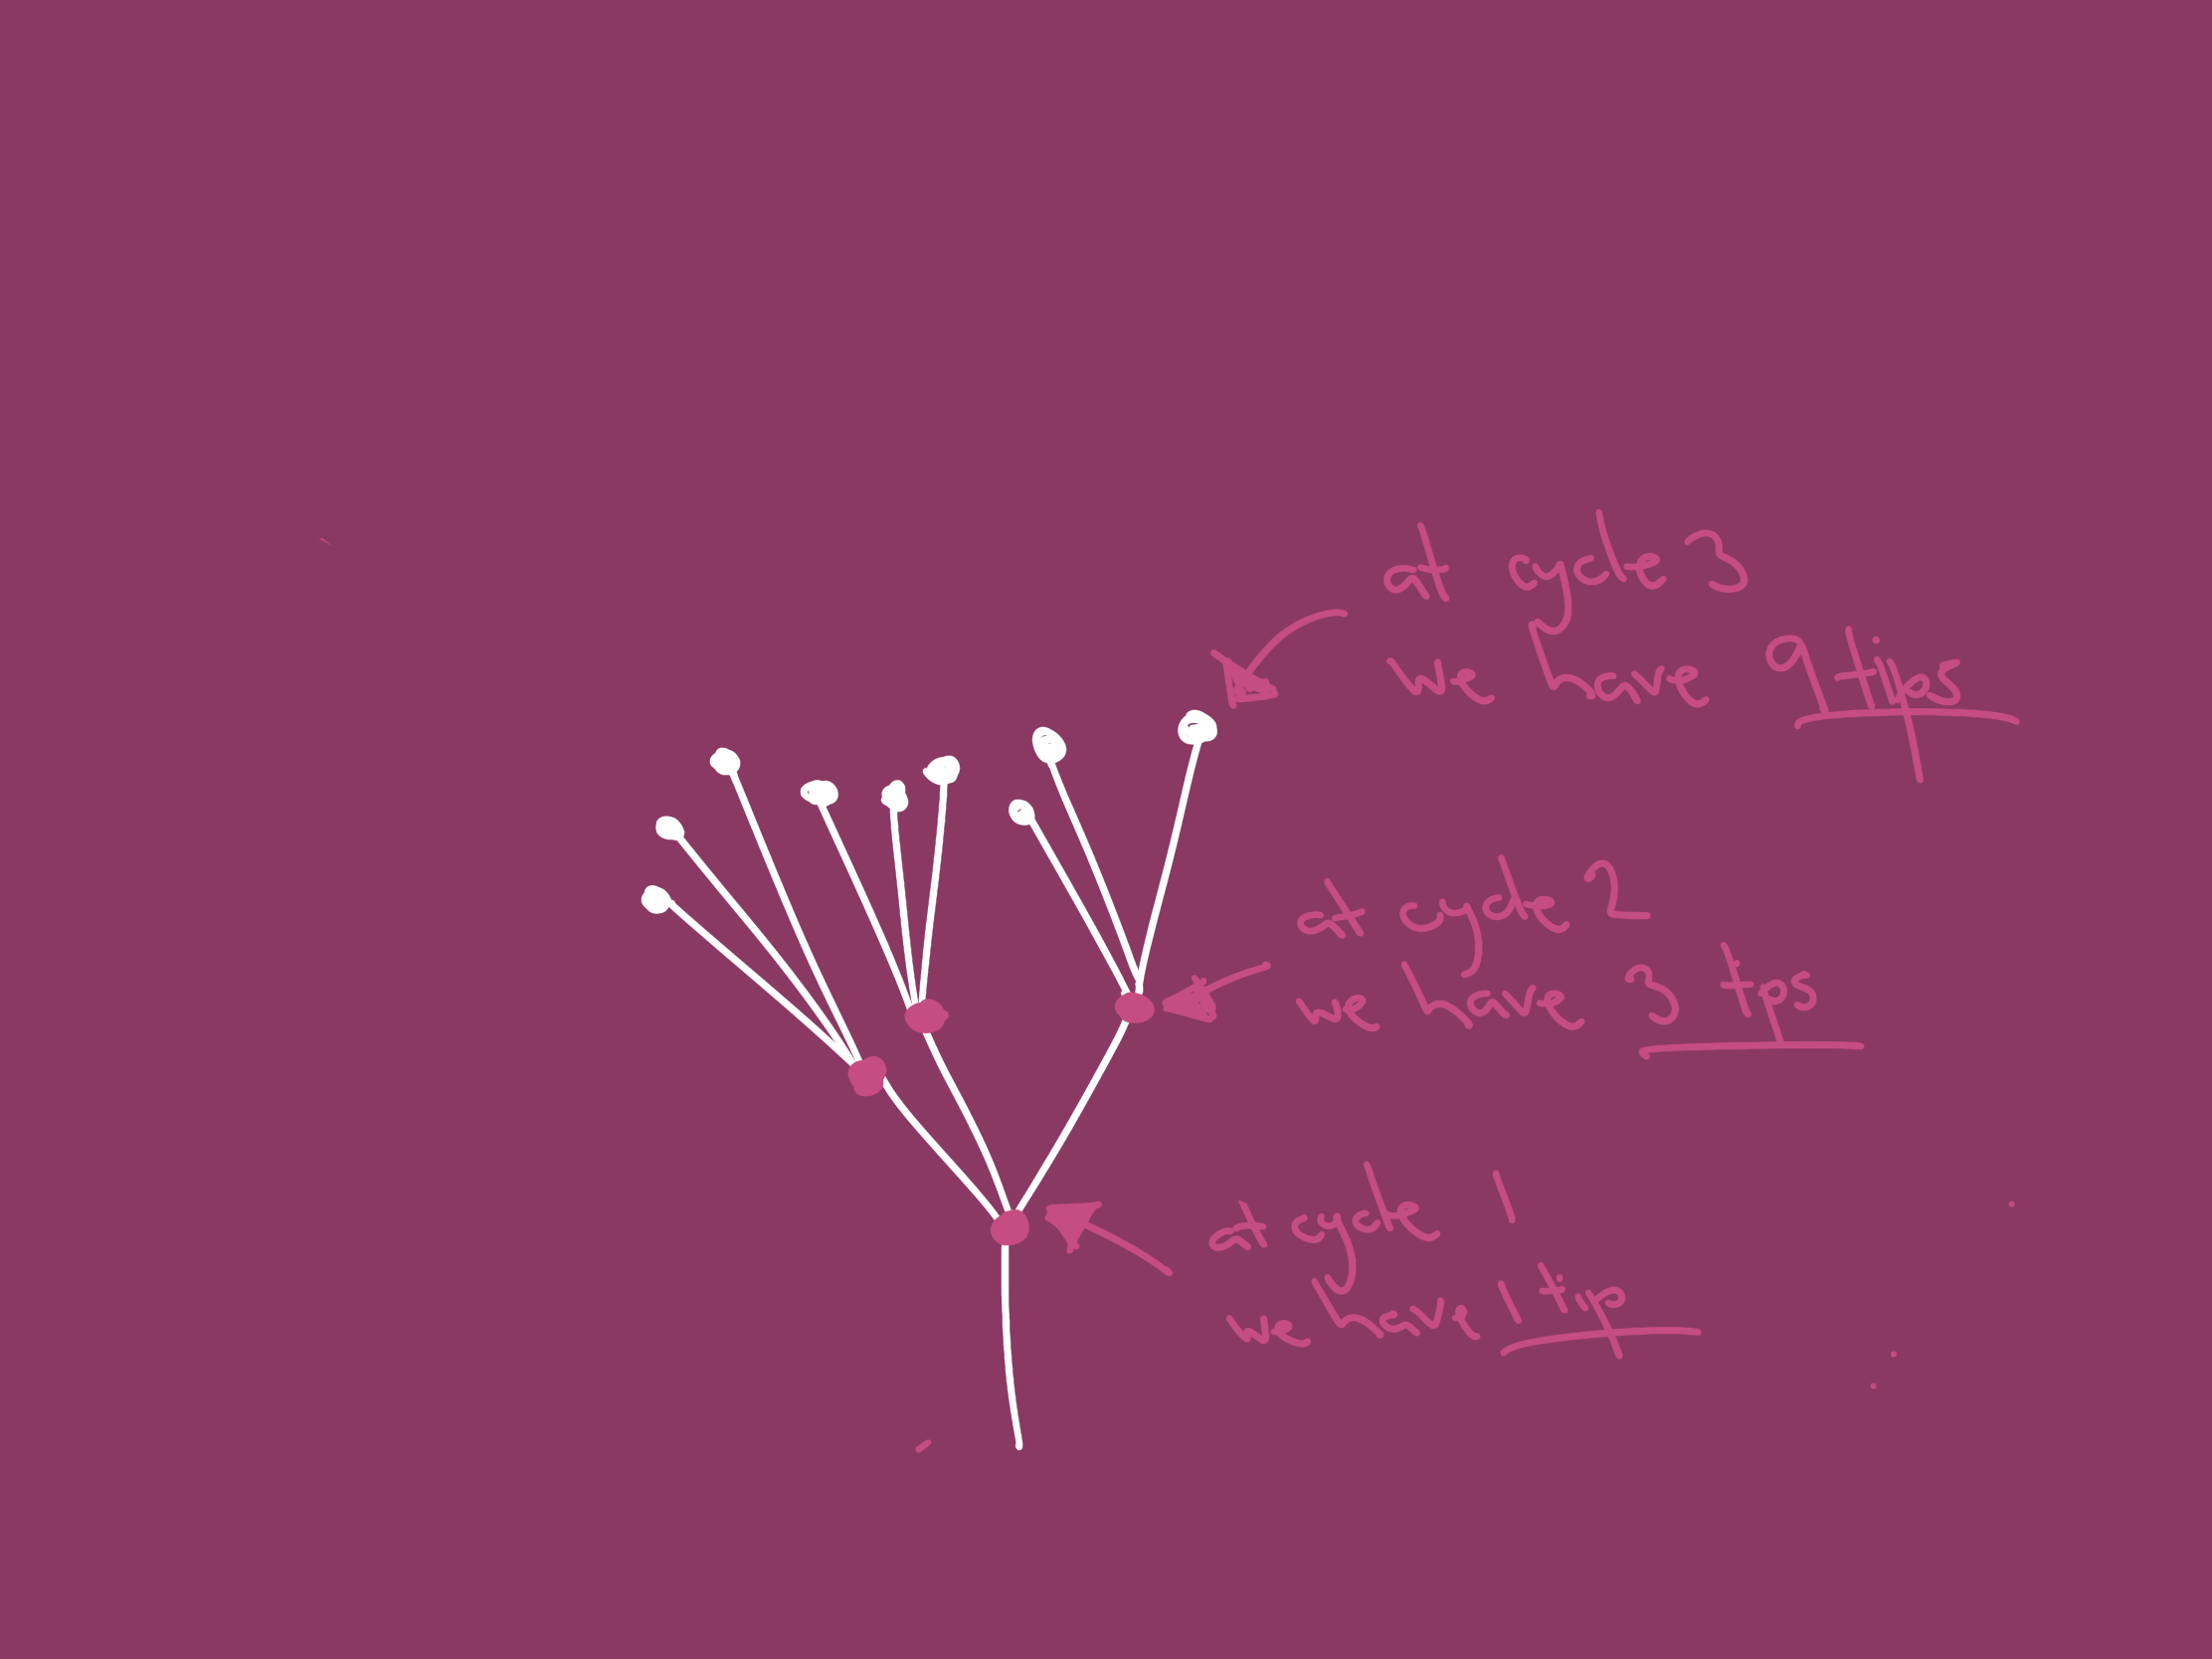 at cycle 3
we have 9 tips
at cycle 2
we have 3 tips
at cycle 1
we have 1 tip